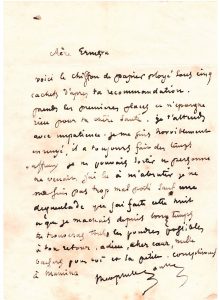 chère Ernesta
voici le chiffon de papier ployé sous cinq
cachets d'après ta recommandation.
prends les premières places et n'épargne
rien pour ta chère santé. je t'attends
avec impatience. je me suis horriblement
ennuyé, il a toujours fait des temps
affreux je ne pouvais sortir et personne
ne venait. j'ai lu à m'abrutir je ne
me suis pas trop mal porté sauf une
que j'ai fait cette nuit
que je machais depuis long temps
tu trouveras tous les possibles
à ton retour. adieu, cher cœur, mille
baisers pour toi et la petite.
à maman
theophile